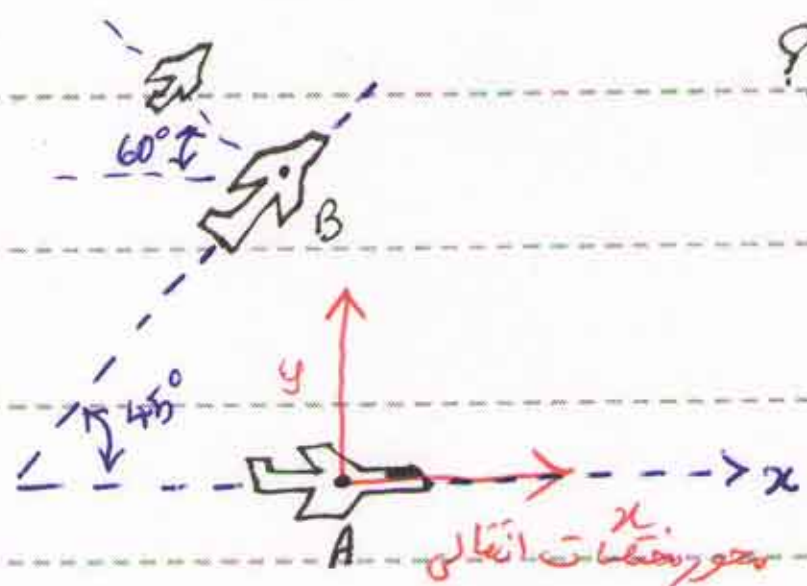 ؟
60°
B
y
45°
x
x
A
محور مختصات انتقالی